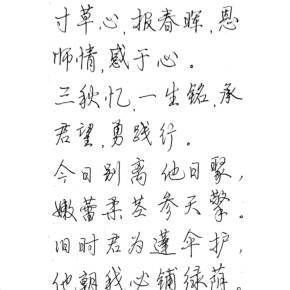 寸草心,报春晖,恩
师情,感于心。
三秋忆,一生铭,承
君望,勇践行。
今日别离他日聚,
嫩蕾柔茎参天擎。
旧时君为蓬伞护,
他朝我必铺绿荫。